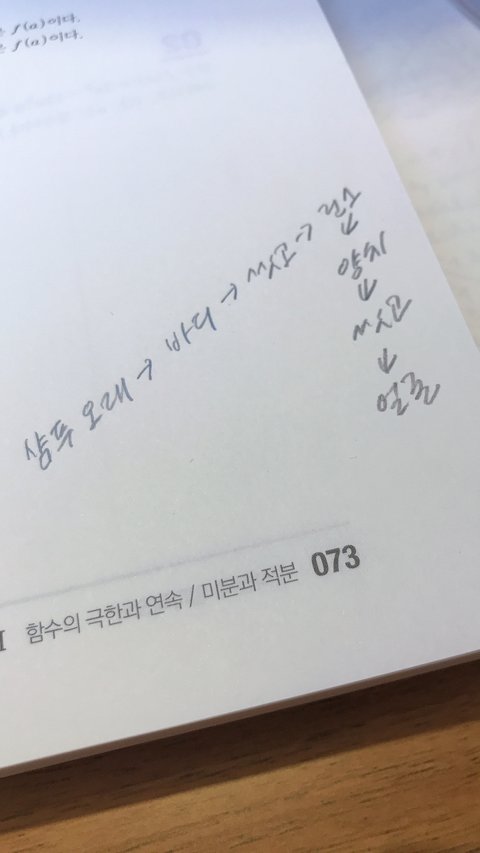 은 f(a)이다.
은 f(a)이다.
샴푸 오래 → 바디 → 씻고 → 린스
↓
양치
↓
씻고
↓
얼굴
I 함수의 극한과 연속 / 미분과 적분 073